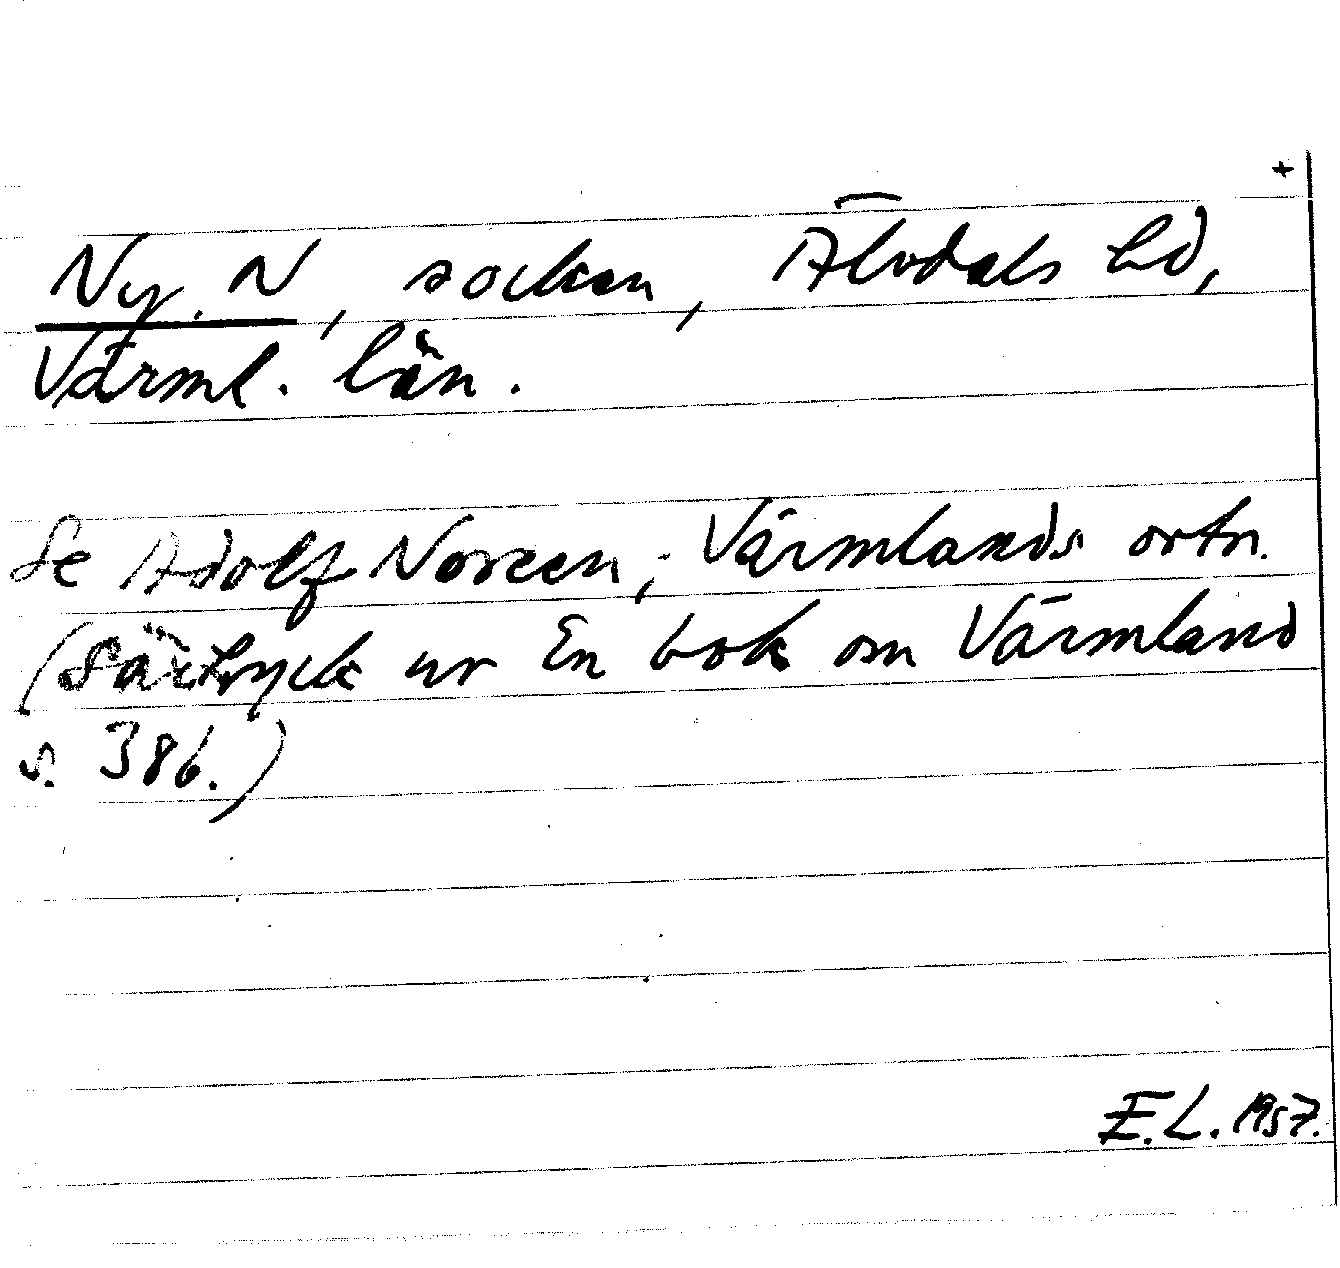 +
Ny. N, socken, Älvdals hd,
Värml. län.
Se Adolf Noreen, Värmlands ortn.
(Särtryck ur En bok om Värmland
s. 386.)
E.L. 1957.